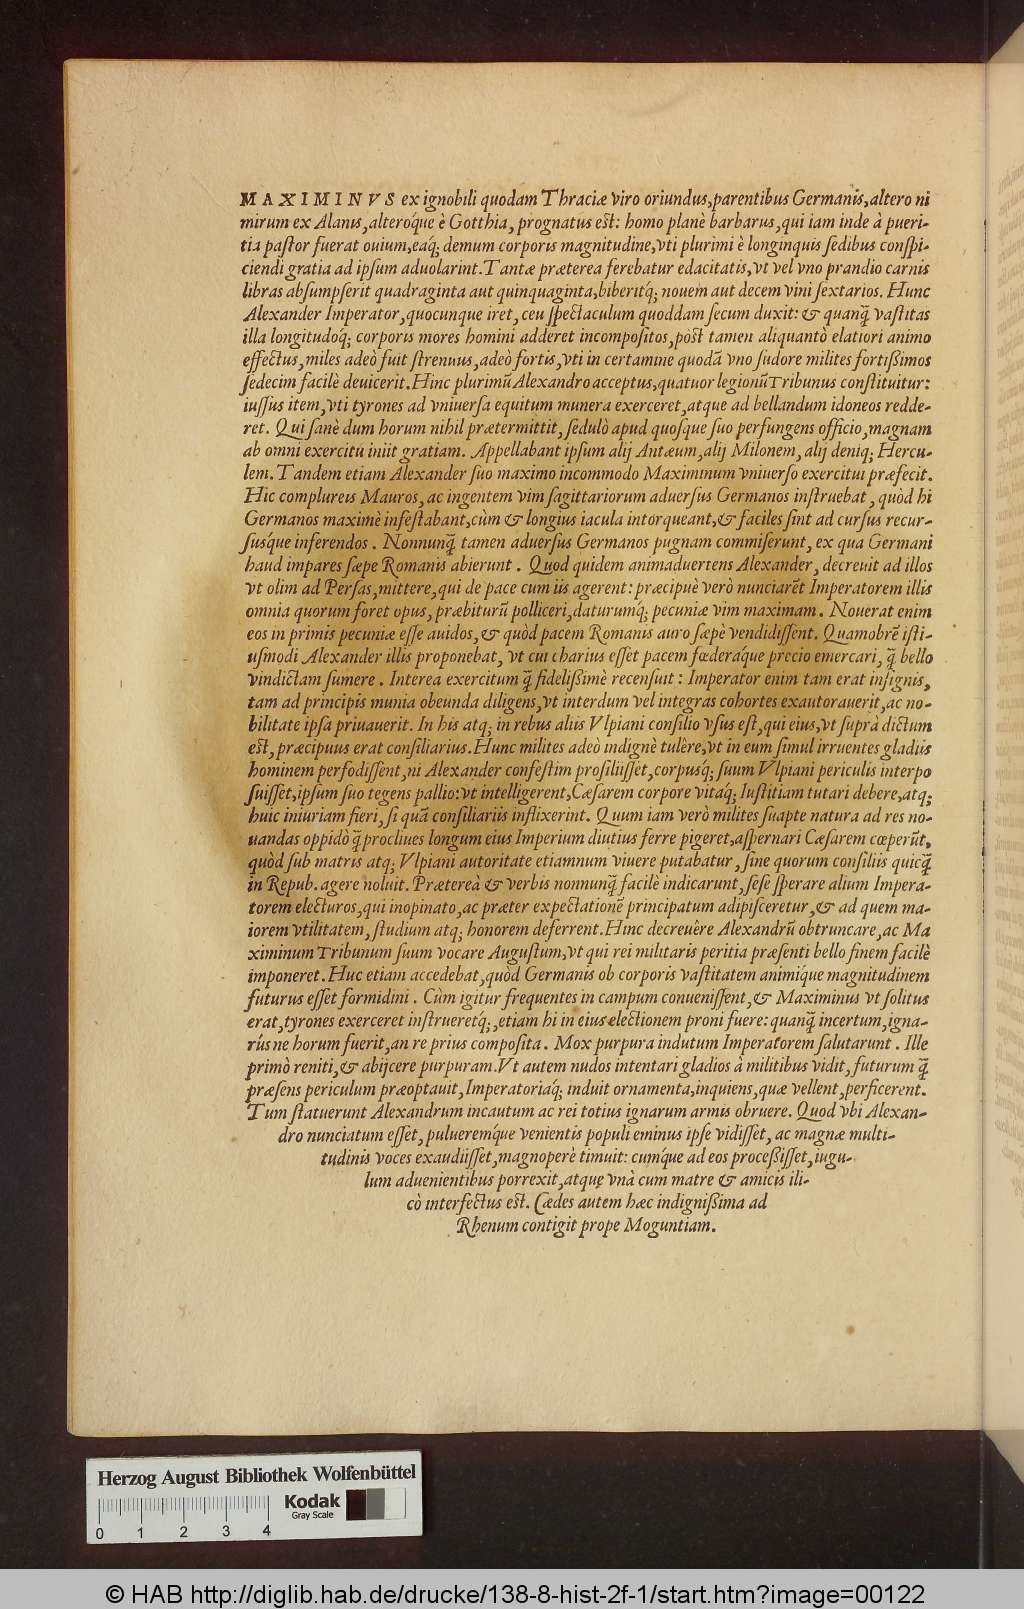 MAXIMINVS ex ignobili quodam Thraciæ viro oriundus, parentibus Germanis, altero ni
mirum ex Alanis, alteroq́ue è Gotthia, prognatus est: homo planè barbarus, qui iam inde à pueri-
tia pastor fuerat ouium, eaq́; demum corporis magnitudine, vti plurimi è longinquis sedibus conspi-
ciendi gratia ad ipsum aduolarint. Tantæ præterea ferebatur edacitatis, vt vel vno prandio carnis
libras absumpserit quadraginta aut quinquaginta, biberitq́; nouem aut decem vini sextarios. Hunc
Alexander Imperator, quocunque iret, ceu spectaculum quoddam secum duxit: & quanq̃ vastitas
illa longitudoq́; corporis mores homini adderet incompositos, pòst tamen aliquantò elatiori animo
effectus, miles adeò fuit strenuus, adeò fortis, vti in certamine quodã vno sudore milites fortißimos
sedecim facilè deuicerit. Hinc plurimũ Alexandro acceptus, quatuor legionũ Tribunus constituitur:
iussus item, vti tyrones ad vniuersa equitum munera exerceret, atque ad bellandum idoneos redde-
ret. Qui sanè dum horum nihil prætermittit, sedulò apud quosque suo perfungens officio, magnam
ab omni exercitu iniit gratiam. Appellabant ipsum alij Antæum, alij Milonem, alij deniq; Hercu-
lem. Tandem etiam Alexander suo maximo incommodo Maximinum vniuerso exercitui præfecit.
Hic complureis Mauros, ac ingentem vim sagittariorum aduersus Germanos instruebat, quòd hi
Germanos maximè infestabant, cùm & longius iacula intorqueant, & faciles sint ad cursus recur-
susq́ue inferendos. Nonnunq̃ tamen aduersus Germanos pugnam commiserunt, ex qua Germani
haud impares sæpe Romanis abierunt. Quod quidem animaduertens Alexander, decreuit ad illos
vt olim ad Persas, mittere, qui de pace cum iis agerent: præcipuè verò nunciarẽt Imperatorem illis
omnia quorum foret opus, præbiturũ polliceri, daturumq́; pecuniæ vim maximam. Nouerat enim
eos in primis pecuniæ esse auidos, & quòd pacem Romanis auro sæpè vendidissent. Quamobrẽ isti-
usmodi Alexander illis proponebat, vt cui charius esset pacem fœderáque precio emercari, q̃ bello
vindictam sumere. Interea exercitum q̃ fidelißimè recensuit: Imperator enim tam erat insignis,
tam ad principis munia obeunda diligens, vt interdum vel integras cohortes exautorauerit, ac no-
bilitate ipsa priuauerit. In his atq; in rebus aliis Vlpiani consilio vsus est, qui eius, vt suprà dictum
est, præcipuus erat consiliarius. Hunc milites adeò indignè tulêre, vt in eum simul irruentes gladiis
hominem perfodissent, ni Alexander confestim prosiliisset, corpusq́; suum Vlpiani periculis interpo
suisset, ipsum suo tegens pallio: vt intelligerent, Cæsarem corpore vitaq́; Iustitiam tutari debere, atq;
huic iniuriam fieri, si quã consiliariis inflixerint. Quum iam verò milites suapte natura ad res no-
uandas oppidò q̃ procliues longum eius Imperium diutius ferre pigeret, aspernari Cæsarem cœperũt,
quòd sub matris atq; Vlpiani autoritate etiamnum viuere putabatur, sine quorum consiliis quicq̃
in Repub. agere noluit. Prætereà & verbis nonnunq̃ facilè indicarunt, sese sperare alium Impera-
torem electuros, qui inopinato, ac præter expectationẽ principatum adipisceretur, & ad quem ma-
iorem vtilitatem, studium atq; honorem deferrent. Hinc decreuêre Alexandrũ obtruncare, ac Ma
ximinum Tribunum suum vocare Augustum, vt qui rei militaris peritia præsenti bello finem facilè
imponeret. Huc etiam accedebat, quòd Germanis ob corporis vastitatem animique magnitudinem
futurus esset formidini. Cùm igitur frequentes in campum conuenissent, & Maximinus vt solitus
erat, tyrones exerceret instrueretq́;, etiam hi in eius electionem proni fuere: quanq̃ incertum, igna-
rúsne horum fuerit, an re prius composita. Mox purpura indutum Imperatorem salutarunt. Ille
primò reniti, & abijcere purpuram. Vt autem nudos intentari gladios à militibus vidit, futurum q̃
præsens periculum præoptauit, Imperatoriaq́; induit ornamenta, inquiens, quæ vellent, perficerent.
Tum statuerunt Alexandrum incautum ac rei totius ignarum armis obruere. Quod vbi Alexan-
dro nunciatum esset, pulueremq́ue venientis populi eminus ipse vidisset, ac magnæ multi-
tudinis voces exaudiisset, magnoperè timuit: cumq́ue ad eos proceßisset, iugu-
lum aduenientibus porrexit, atque vnà cum matre & amicis ili-
cò interfectus est. Cædes autem hæc indignißima ad
Rhenum contigit prope Moguntiam.
Herzog August Bibliothek Wolfenbüttel
Kodak
Gray Scale
0 1 2 3 4
© HAB http://diglib.hab.de/drucke/138-8-hist-2f-1/start.htm?image=00122